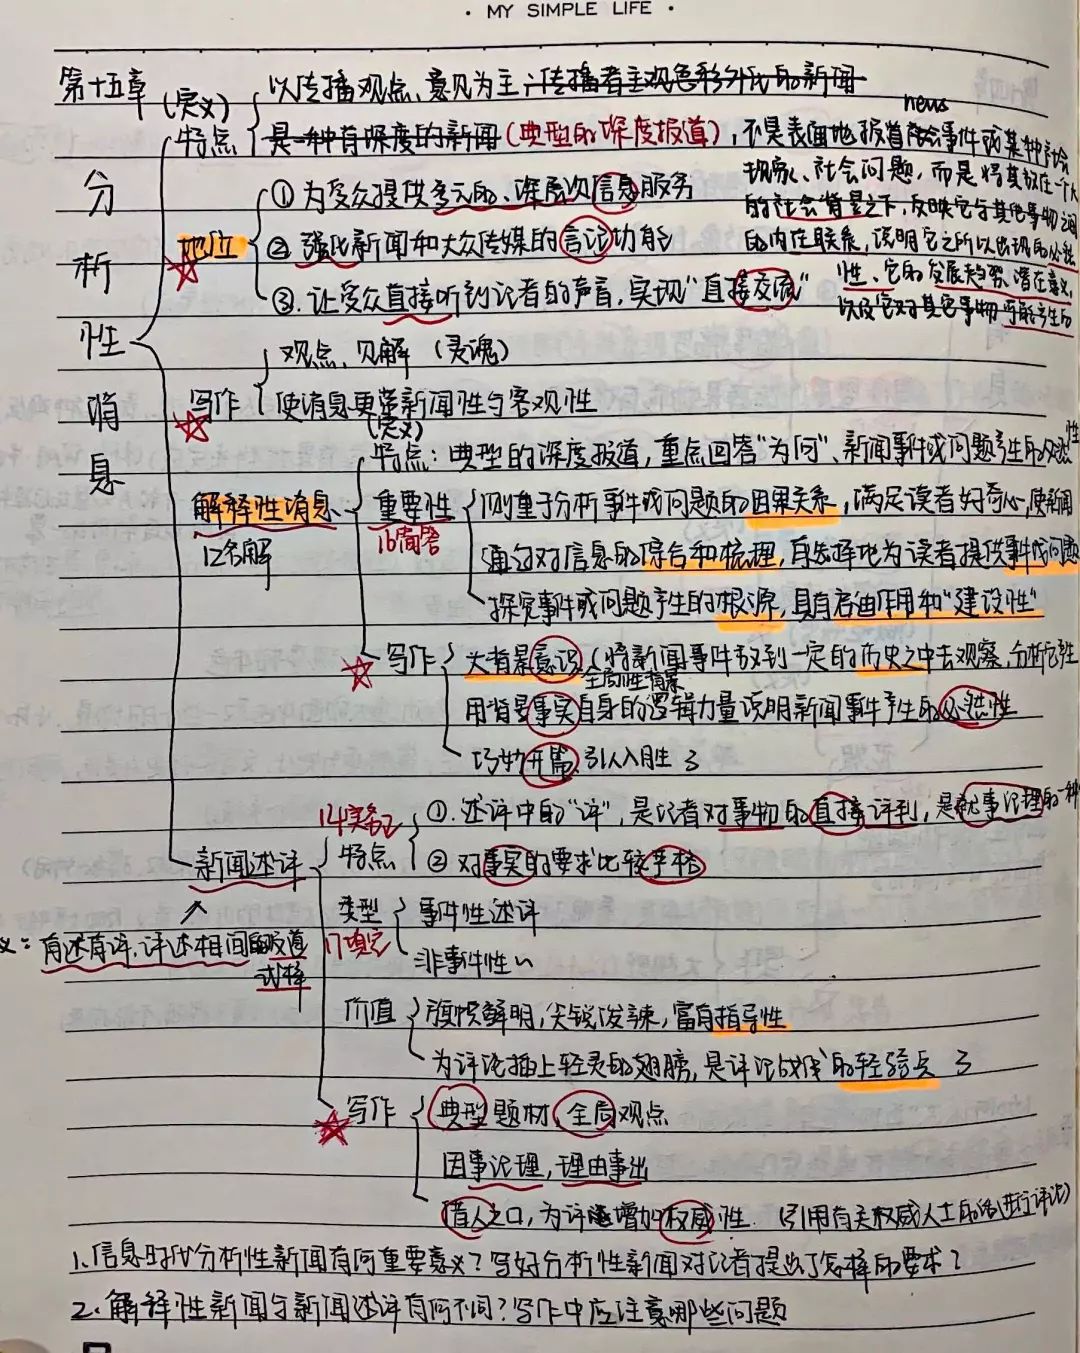 · MY SIMPLE LIFE ·
第十五章
分析性消息
(定义)
特点
以传播观点、意见为主,传播者主观色彩外化的新闻
是一种有深度的新闻(典型的深度报道),不是表面地报道社会事件或某种社会
news
现象、社会问题,而是将其放在一个大
的社会背景之下,反映它与其他事物之间
的内在联系,说明它之所以出现的必然
性、它的发展趋势、潜在意义,
以及它对其它事物可能产生的
地位
① 为受众提供多元的、深层次信息服务
② 强化新闻和大众传媒的言论功能
③. 让受众直接听到记者的声音,实现“直接交流”
写作
观点、见解(灵魂)
使消息更带新闻性与客观性
解释性消息
12名解
(定义)
特点:典型的深度报道,重点回答“为何”、新闻事件或问题产生的必然性
重要性
16简答
侧重于分析事件或问题的因果关系,满足读者好奇心,使新闻
通过对信息的综合和梳理,有选择地为读者提供事件或问题
探究事件或问题产生的根源,具有启迪作用和“建设性”
写作
大背景意识(将新闻事件放到一定的历史之中去观察、分析它产生
全局性背景
用背景事实自身的逻辑力量说明新闻事件产生的必然性
巧妙开篇,引人入胜
新闻述评
义:有述有评、评述相间的报道
14实务
特点
①. 述评中的“评”,是记者对事物的直接评判,是就事论理的一种
② 对事实的要求比较严格
类型
17填空
事件性述评
非事件性〃
价值
旗帜鲜明,尖锐泼辣,富有指导性
为评论插上轻灵的翅膀,是评论战线的轻骑兵
写作
典型题材、全局观点
因事论理,理由事出
借人之口,为评述增加权威性. (引用有关权威人士的话进行评论)
1、信息时代分析性新闻有何重要意义?写好分析性新闻对记者提出了怎样的要求?
2、解释性新闻与新闻述评有何不同?写作中应注意哪些问题